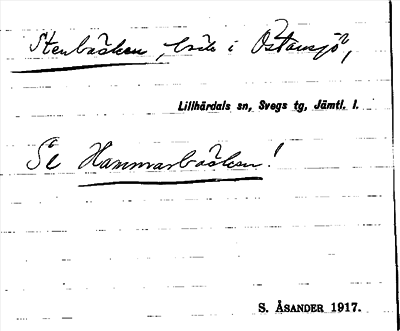 Stenbäcken, bäck i Östansjö,
Lillhärdals sn, Svegs tg, Jämtl. l.
Se Hammarbäcken!
S. ÅSANDER 1917.